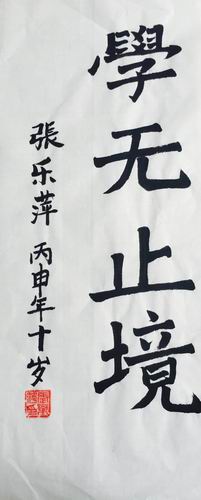 學无止境
張乐萍 丙申年十岁